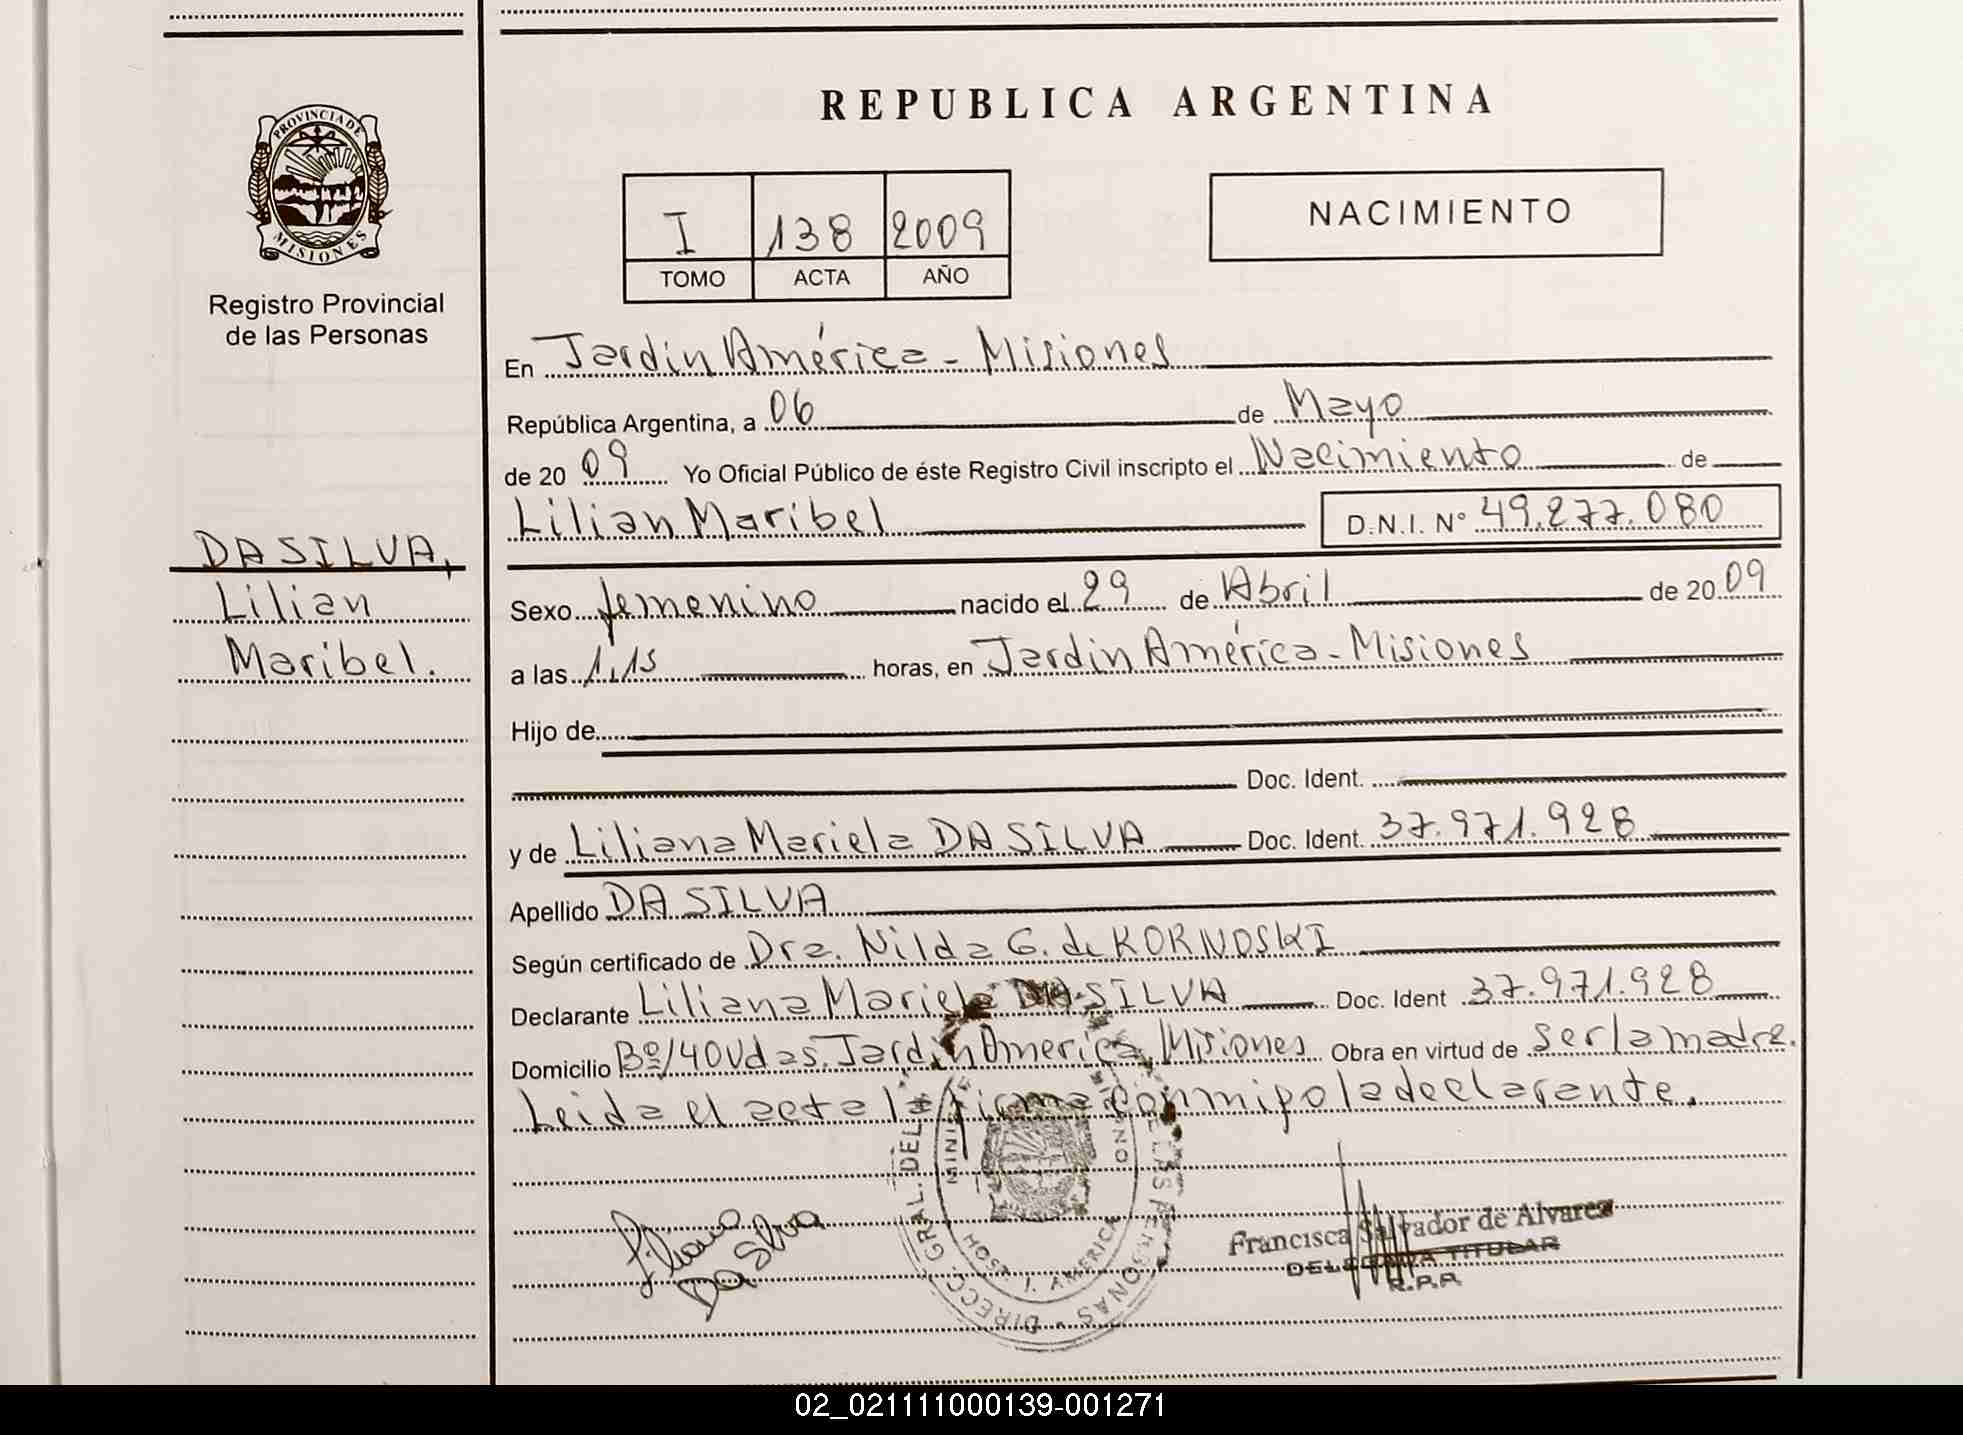 REPUBLICA ARGENTINA
PROVINCIA DE
MISIONES
Registro Provincial
de las Personas
I 138 2009
TOMO ACTA AÑO
NACIMIENTO
En Jardin América - Misiones
República Argentina, a 06 de Mayo
de 20 09 Yo Oficial Público de éste Registro Civil inscripto el Nacimiento de
Lilian Maribel D.N.I. N° 49.277.080
DA SILVA,
Lilian
Maribel.
Sexo femenino nacido el 29 de Abril de 20 09
a las 1,15 horas, en Jardin América - Misiones
Hijo de
Doc. Ident.
y de Liliana Mariela DA SILVA Doc. Ident. 37.971.928
Apellido DA SILVA
Según certificado de Dra. Nilda G. de KORNOSKI
Declarante Liliana Mariela DA SILVA Doc. Ident 37.971.928
Domicilio Bº/40 Vdas. Jardin America, Misiones Obra en virtud de ser la madre.
Leida el acta la firma conmigo la declarante.
Liliana
Da Silva
DIRECC. GRAL. DEL PERSONAS
AMERICA
Francisca Salvador de Alvarez
DELEGADA TITULAR
R.P.P.
02_021111000139-001271